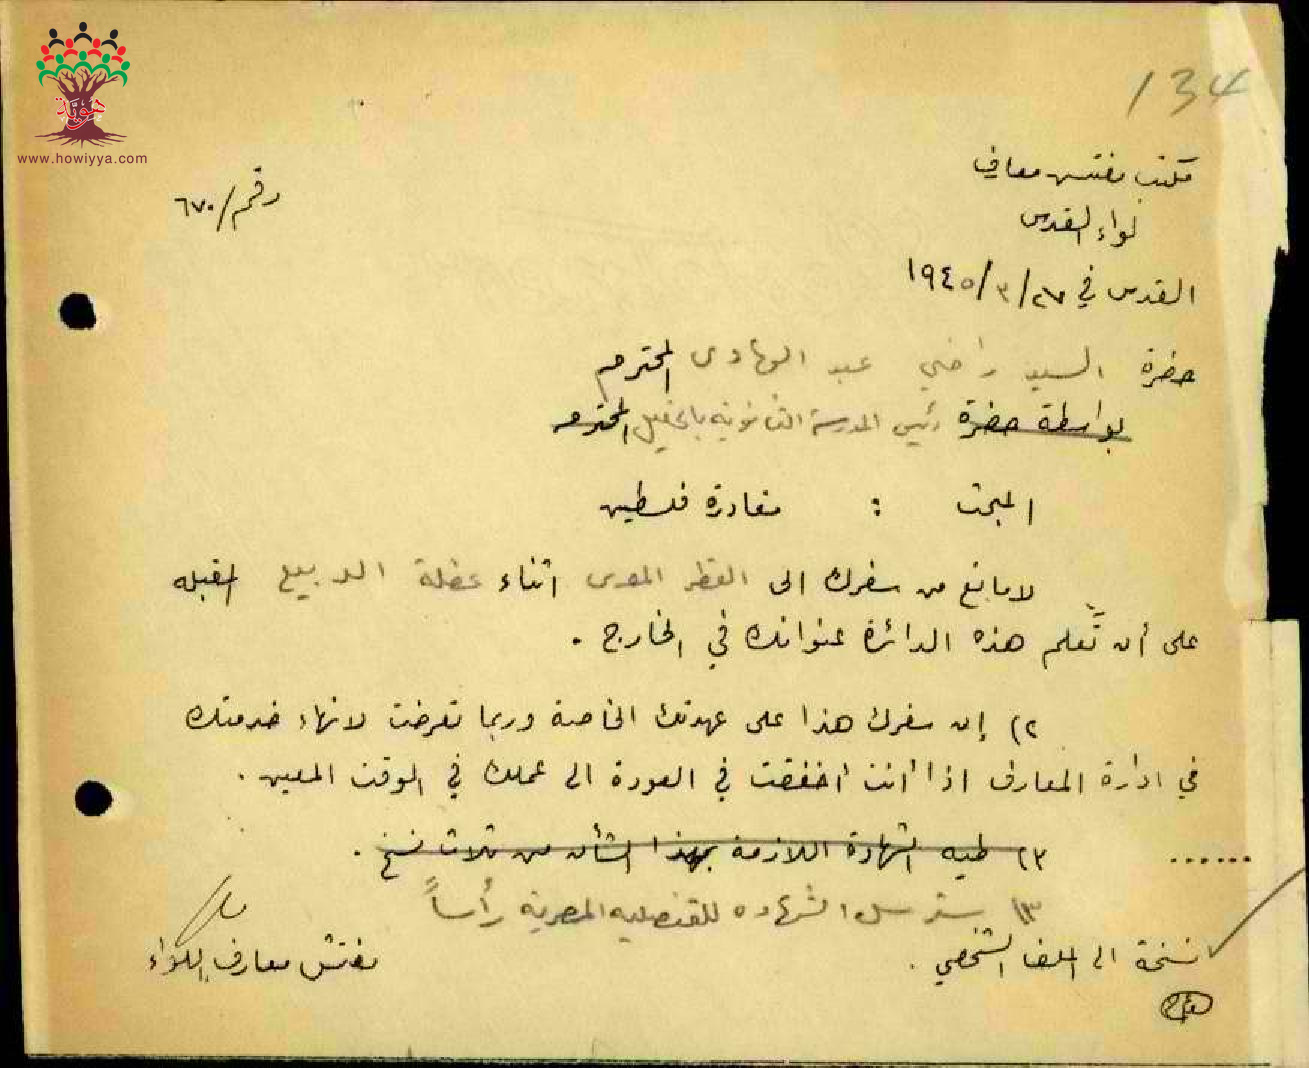 134
هوية
www.howiyya.com
مكتب مفتش معارف
رقم/ ٦٧٠
لواء القدس
القدس في ٢٧/٣/١٩٤٥
حضرة السيد راضي عبد الهادي المحترم
بواسطة حضرة رئيس المدرسة الثانوية بالخليل المحترم
المبحث : مغادرة فلسطين
لا مانع من سفرك الى القطر المصري اثناء عطلة الربيع المقبلة
على أن تُعلم هذه الدائرة عنوانك في الخارج .
٢) إن سفرك هذا على عهدتك الخاصة وربما تعرضت لانهاء خدمتك
في ادارة المعارف اذا أنت أخفقت في العودة الى عملك في الوقت المعين .
...... ٣) طيه الشهادة اللازمة بهذا الشأن من ثلاث نسخ .
٣) سترسل الشهاده للقنصليه المصرية رأساً
نسخة الى الملف الشخصي .
مفتش معارف اللواء